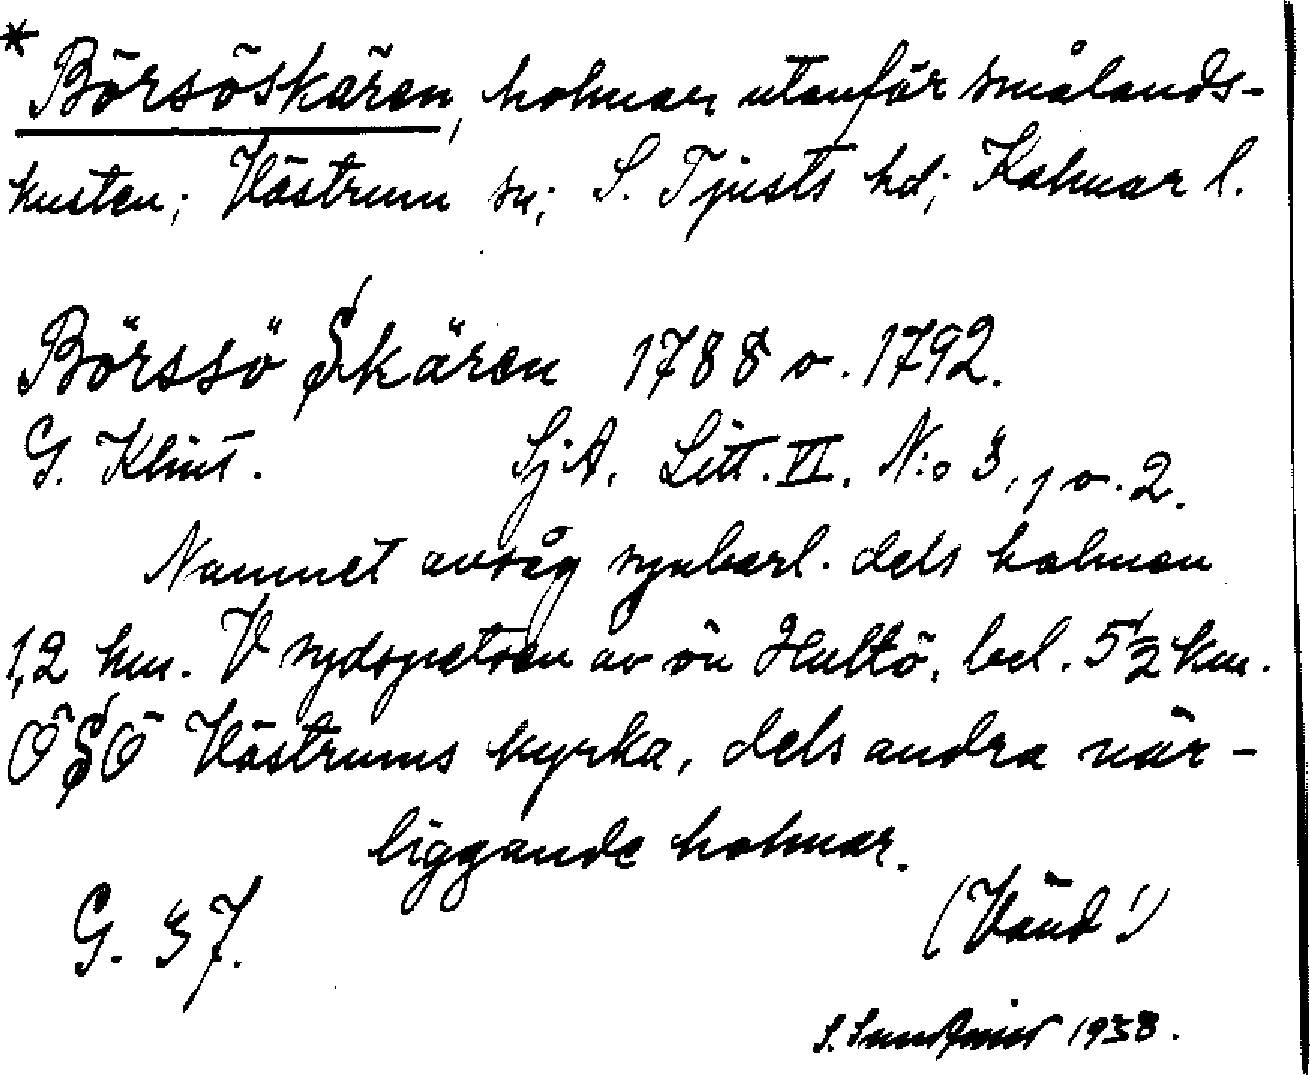 * Börsöskären, holmar utanför smålands-
kusten; Västrum sn; S. Tjusts hd; Kalmar l.
Börssö Skären 1788 o. 1792.
G. Klint. SjA. Litt. VI. N:o 3, 1 o. 2.
Namnet avsåg synbarl. dels holmen
1,2 km. V sydspetsen av ön Hultö, bel. 5 1/2 km.
ÖSÖ Västrums kyrka, dels andra när-
liggande holmar.
G. 37. (Vänd!)
S. 1938.